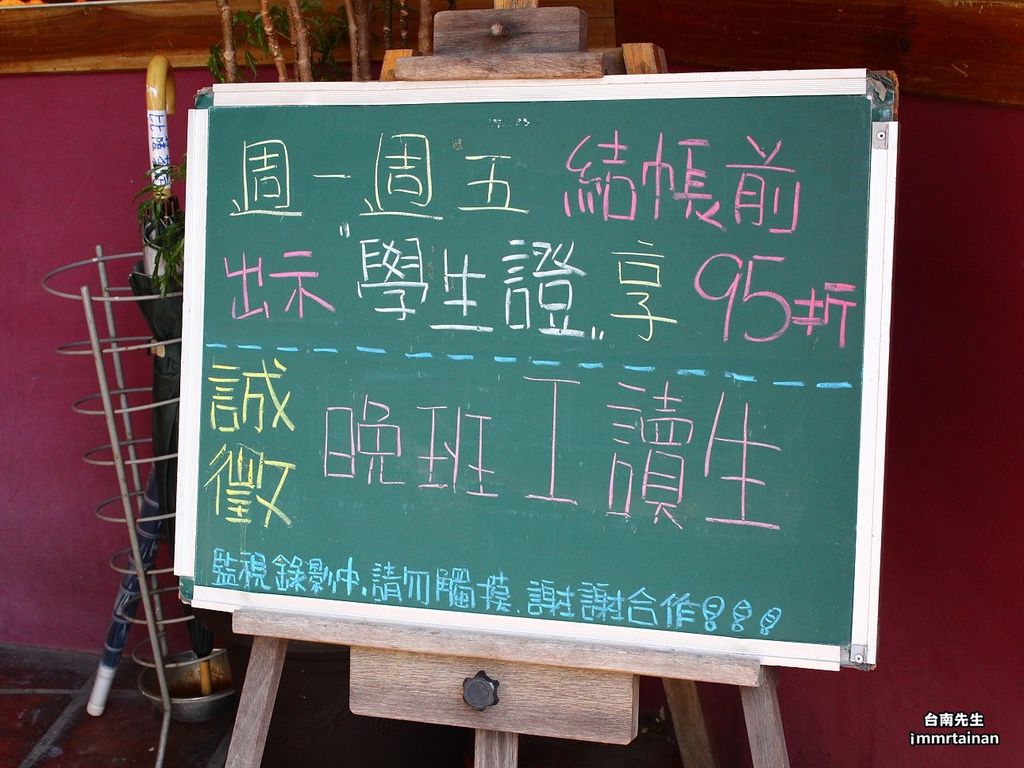 週一週五 結帳前
出示學生證享95折
誠徵 晚班工讀生
監視錄影中.請勿觸摸.謝謝合作!!!
台南先生
immrtainan